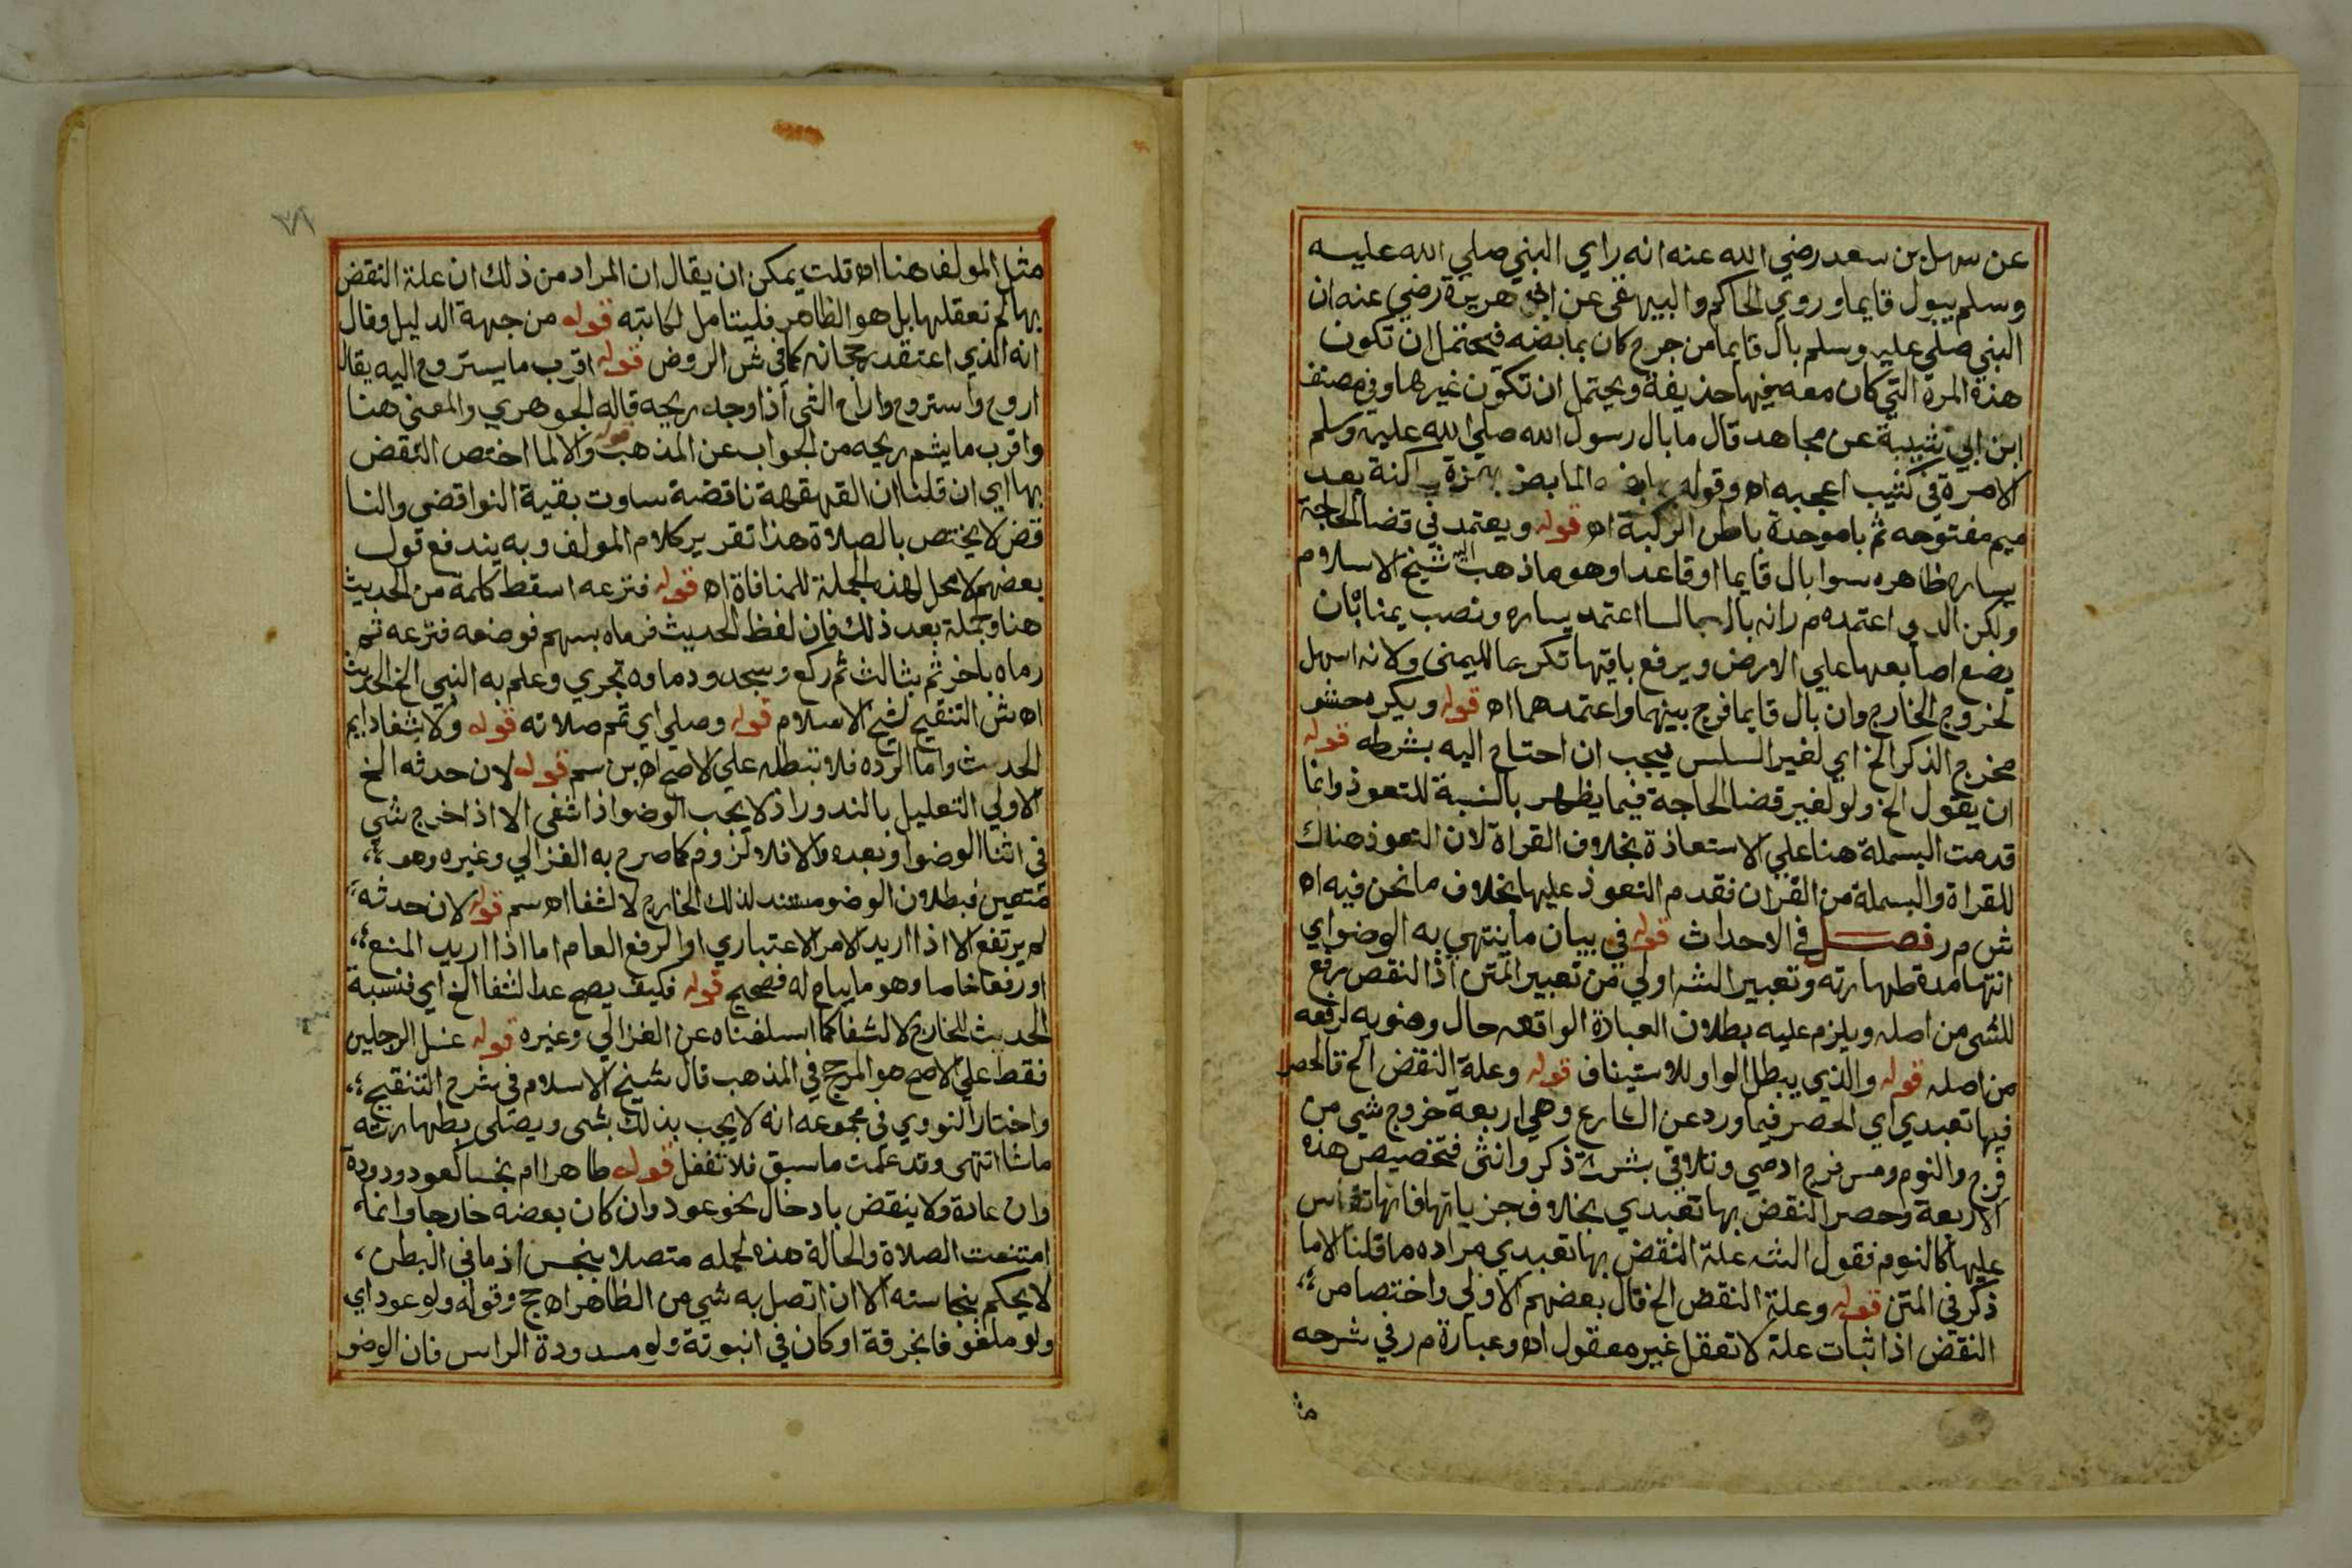 عن سهل بن سعد رضي الله عنه انه راي النبي صلي الله عليه
وسلم يبول قايما وروي الحاكم والبيهقي عن ابي هريرة رضي عنه ان
النبي صلي عليه وسلم بال قايما من جرح كان بمابضه فيحتمل ان تكون
هذه المرة التي كان معه فيها حذيفة ويحتمل ان تكون غيرها وفي مصنف
ابن ابي شيبة عن مجاهد قال ما بال رسول الله صلي الله عليه وسلم
الا مرة في كثيب اعجبه اه وقوله بمابضه المابض بهمزة ساكنة بعد
ميم مفتوحه ثم با موحدة باطن الركبة اه قوله ويعتمد في قضا الحاجة
يساره ظاهره سوا بال قايما او قاعدا وهو ما ذهب اليه شيخ الاسلام
ولكن الذي اعتمده م ر انه بال جالسا اعتمد يساره ونصب يمناه بان
يضع اصابعها علي الارض ويرفع باقيها تكرعا لليمني ولانه اسهل
لخروج الخارج وان بال قايما فرج بينهما واعتمدهما اه قوله ويكره حشو
مخرج الذكر الخ اي لغير السلس يجب ان احتاج اليه بشرطه قوله
ان يقول الخ ولو لغير قضا الحاجة فيما يظهر بالنسبة للتعوذ وانما
قدمت البسملة هنا علي الاستعاذة بخلاف القراة لان التعوذ هناك
للقراة والبسملة من القران فقدم التعوذ عليها بخلاف ما نحن فيه اه
ش م ر فصل في الاحداث قوله في بيان ما ينتهي به الوضو اي
انتها مدة طهارته وتعبير الشه اولي من تعبير المتن اذ النقض رفع
للشي من اصله ويلزم عليه بطلان العبادة الواقعه حال وضويه لرفعه
من اصله قوله والذي يبطل الواو للاستيناف قوله وعلة النقض الخ فالحصر
فيها تعبدي اي الحصر فيما ورد عن الشارع وهي اربعة خروج شي من
فرج والنوم ومس فرج ادمي وتلاقي بشرتي ذكر وانثي فتخصيص هذه
الاربعة وحصر النقض بها تعبدي بخلاف جزياتها فانها تقاس
عليها كالنوم فقول الشه علة النقض بها تعبدي مراده ما قلنا الاما
ذكر في المتن قوله وعلة النقض الخ قال بعضهم الاولي واختصاص
النقض اذ اثبات علة لا تعقل غير معقول اه وعبارة م ر في شرحه
مثل
٢٨
مثل المولف هنا اه قلت يمكن ان يقال ان المراد من ذلك ان علة النقض
بها لم تعقلها بل هو الظاهر فليتامل لكاتبه قوله من جهة الدليل وقال
انه الذي اعتقد رجحانه كما في ش الروض قوله اقرب ما يستروح اليه يقال
اروح واستروح واراح الشي اذا وجد ريحه قاله الجوهري والمعني هنا
واقرب ما يشم ريحه من الجواب عن المذهب قوله والا لما اختص النقض
بها اي ان قلنا ان القهقهة ناقضة ساوت بقية النواقض والنا
قض لا يختص بالصلاة هذا تقرير كلام المولف وبه يندفع قول
بعضهم لا محل لهذه الجملة للمنافاة اه قوله فنزعه اسقط كلمة من الحديث
هنا وجملة بعد ذلك فان لفظ الحديث فرماه بسهم فوضعه فنزعه ثم
رماه باخر ثم بثالث ثم ركع وسجد ودماوه تجري وعلم به النبي الخ الحديث
اه ش التنقيح لشيخ الاسلام قوله وصلي اي تمم صلاته قوله ولا شفا دايم
الحدث واما الرده فلا تبطله علي الاصح اه بن سم قوله لان حدثه الخ
الاولي التعليل بالندور اذ لا يجب الوضو اذا شفي الا اذ اخرج شي
في اثنا الوضو او بعده والا فلا لزوم كما صرح به الغزالي وغيره وهو
متعين فبطلان الوضو مستند لذلك الخارج لا لشفا اه سم قوله لان حدثه
لم يرتفع الا اذا اريد الامر الاعتباري او الرفع العام اما اذا اريد المنع
او رفعا خاصا وهو ما يباح له فصحيح قوله فكيف يصح عد الشفا الخ اي فنسبة
الحديث للخارج لا لشفا كما اسلفناه عن الغزالي وغيره قوله غسل الرجلين
فقط علي الاصح هو المرجح في المذهب قال شيخ الاسلام في شرح التنقيح
واختار النووي في مجموعه انه لا يجب بذلك شي ويصلي بطهارته
ما شا انتهي وقد علمت ما سبق فلا تغفل قوله طاهرا ام نجسا كعود ودودة
وان عادة ولا ينقض بادخال نحو عود وان كان بعضه خارجا وانما
امتنعت الصلاة والحالة هذه لحمله متصلا بنجس اذ ما في البطن
لا يحكم بنجاسته الا ان اتصل به شي من الظاهر اه ح ج وقوله ولو عود اي
ولو ملفوفا بخرقة او كان في انبوتة ولو مسدودة الراس فان الوضو